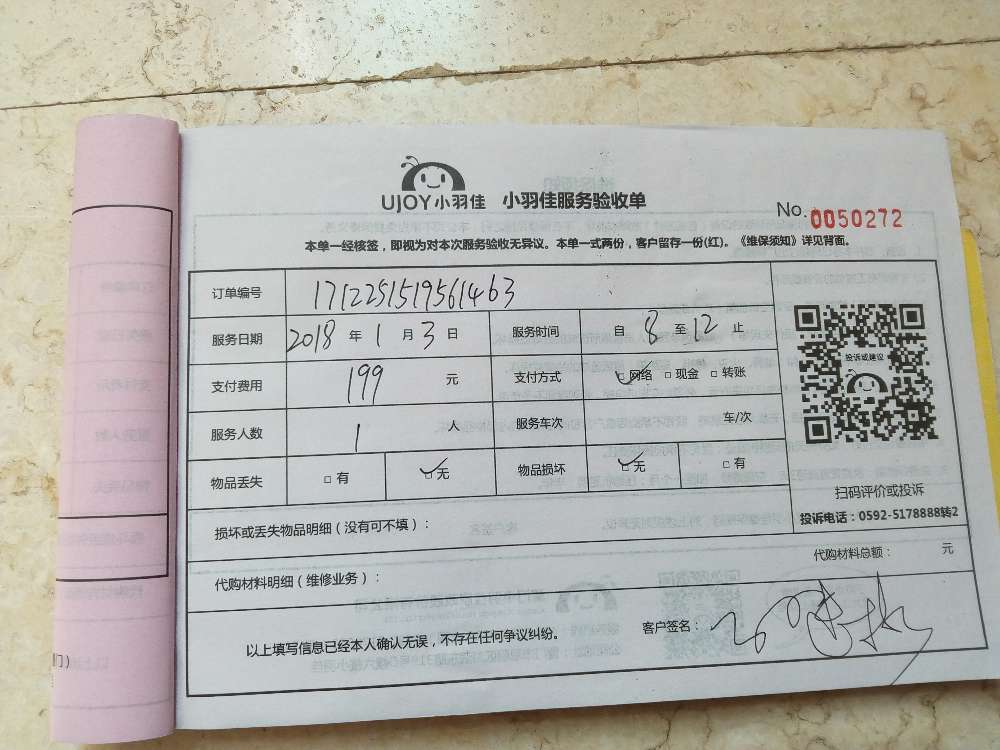 UJOY小羽佳 小羽佳服务验收单
No. 0050272
本单一经核签，即视为对本次服务验收无异议。本单一式两份，客户留存一份(红)。《维保须知》详见背面。
订单编号 1712251519561463
服务日期 2018 年 1 月 3 日 服务时间 自 8 至 12 止
支付费用 199 元 支付方式 ☑网络 □现金 □转账
服务人数 1 人 服务车次 车/次
物品丢失 □有 ☑无 物品损坏 ☑无 □有
投诉或建议
扫码评价或投诉
投诉电话：0592-5178888转2
损坏或丢失物品明细（没有可不填）：
代购材料明细（维修业务）： 代购材料总额： 元
以上填写信息已经本人确认无误，不存在任何争议纠纷。 客户签名：
门）